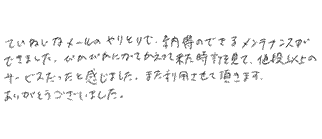 ていねいなメールのやりとりで、納得のできるメンテナンスが
できました。ピカピカになってかえって来た時計を見て、値段以上の
サービスだったと感じました。また利用させて頂きます。
ありがとうございました。